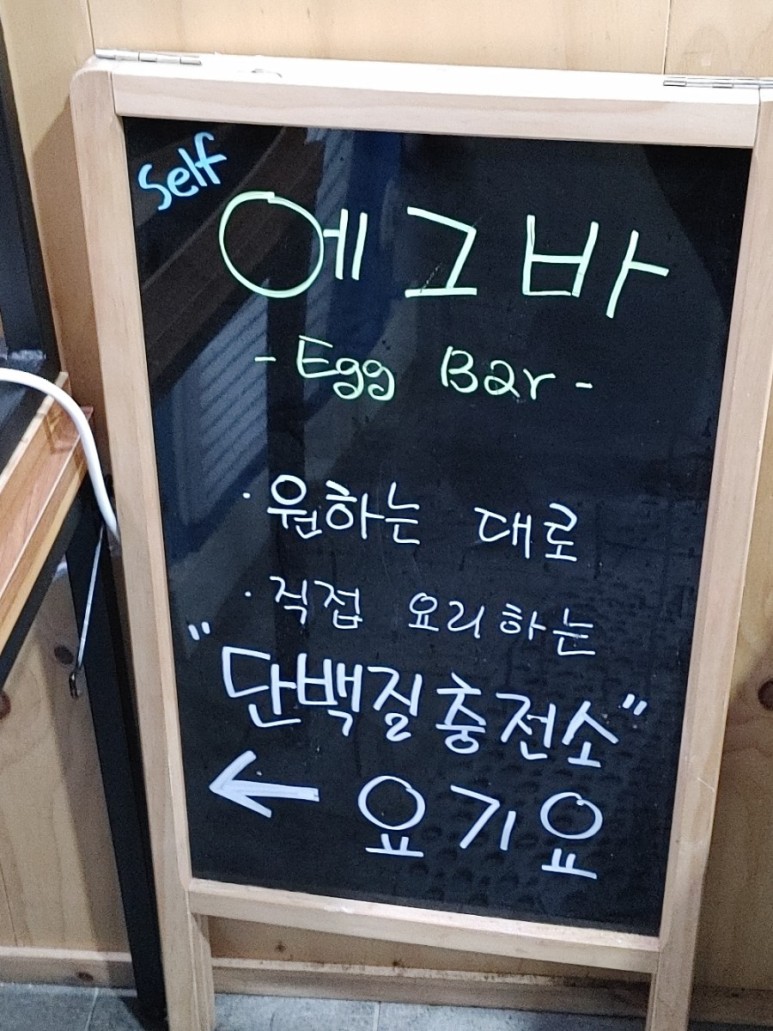 Self
에그바
- Egg Bar -
· 원하는 대로
· 직접 요리하는
"단백질충전소"
← 요기요